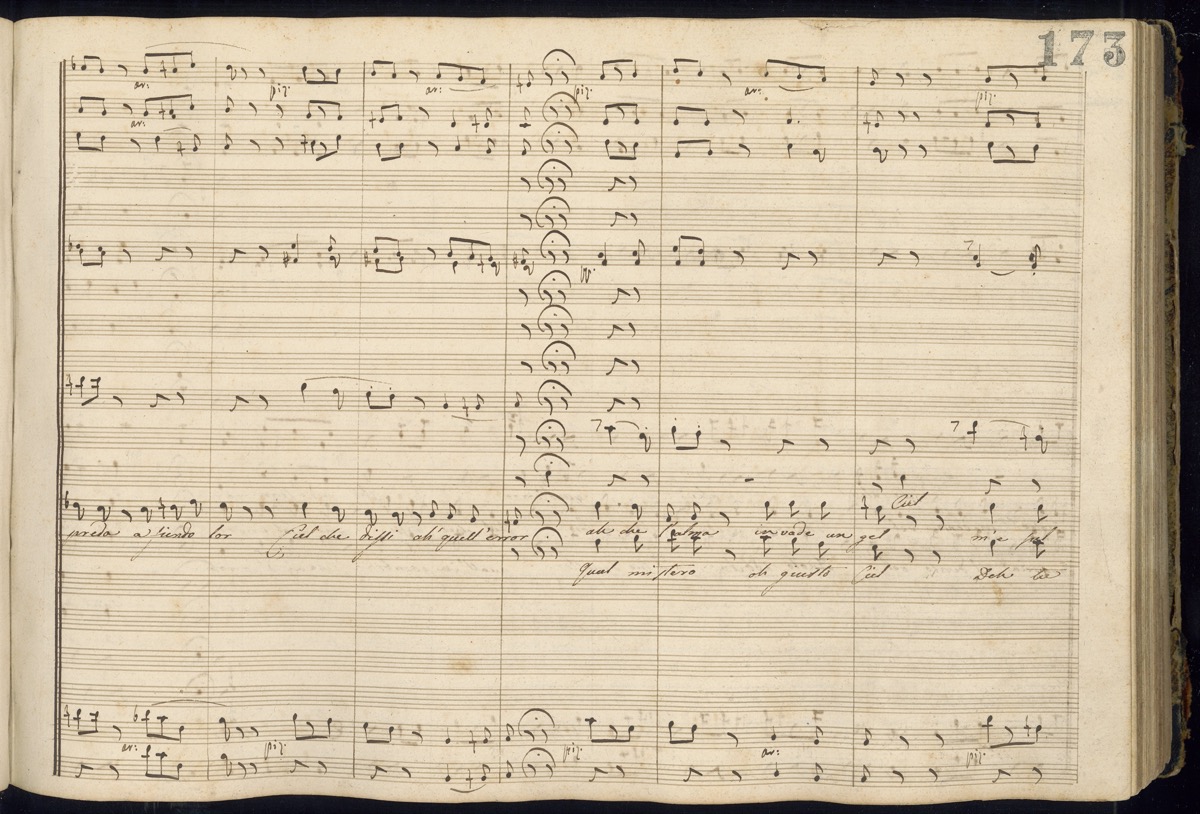 173
ar: piz: ar: piz: ar: piz:
ar:
pp:
Ciel
preda a sfiendo lor Ciel che dissi ah quell'error ah che l'alma invade un gel m'e
Qual mistero oh giusto Ciel Deh tu
ar: piz: piz: ar: piz: